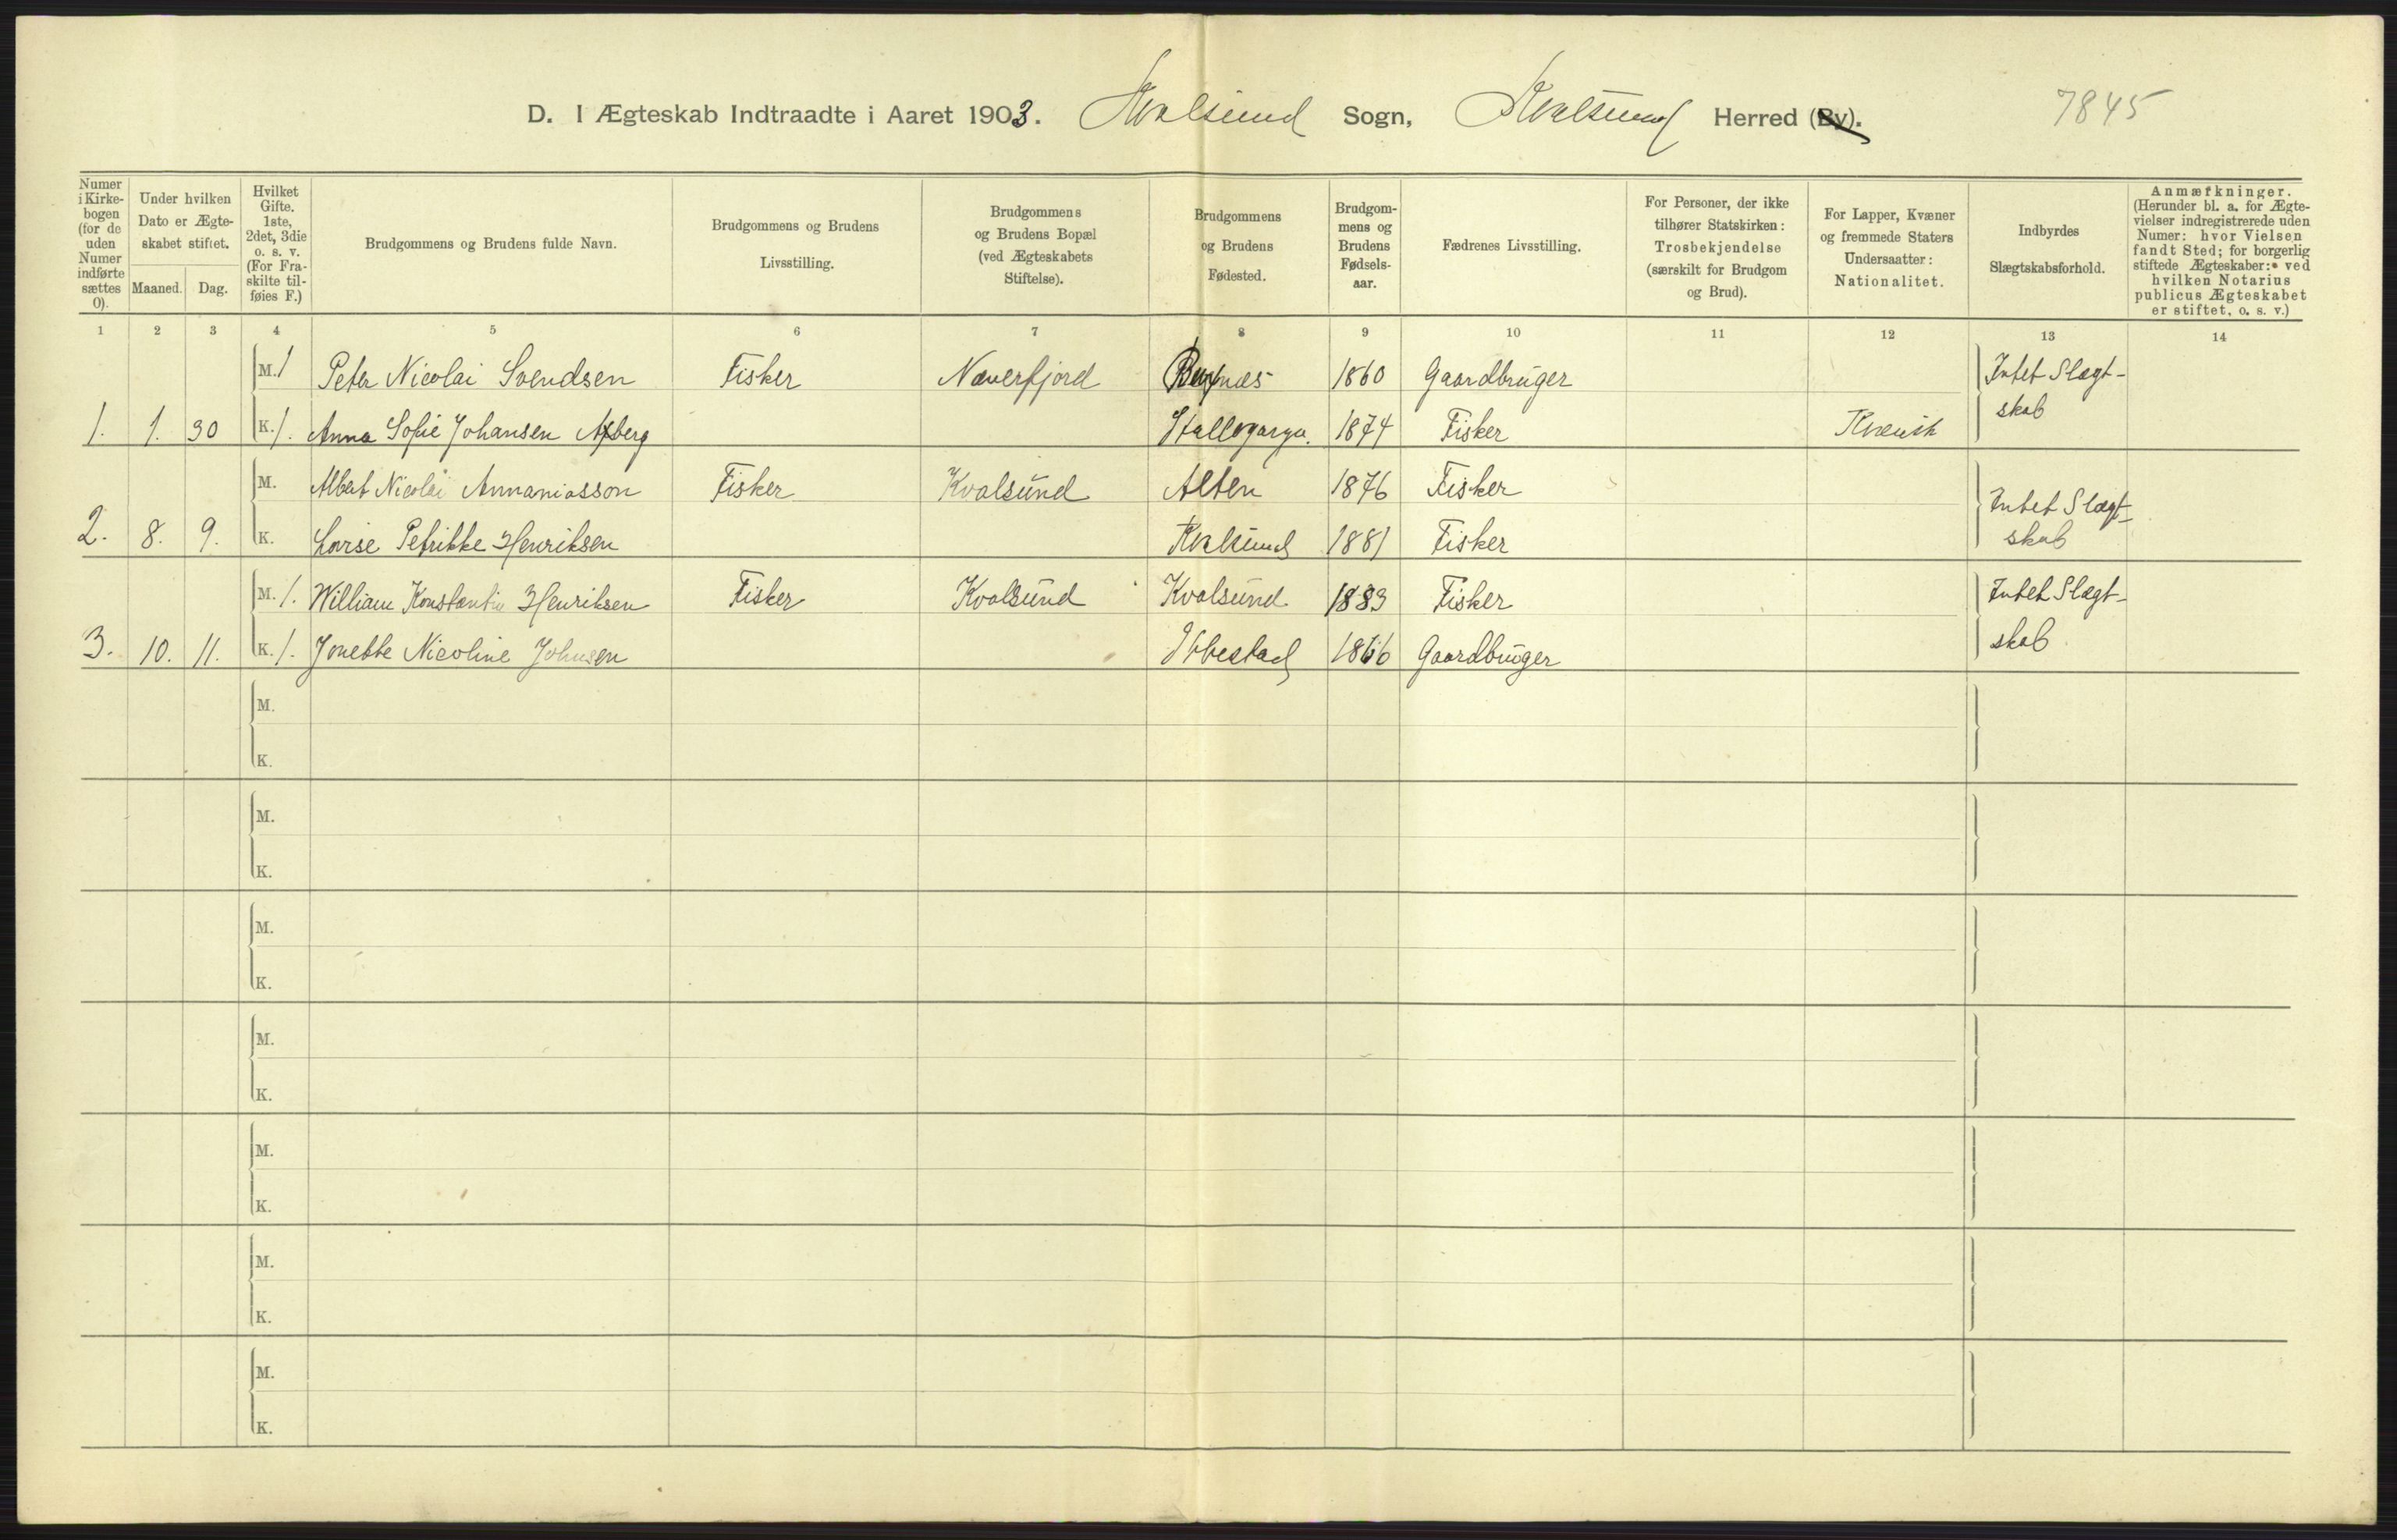 D. I Ægteskab Indtraadte i Aaret 1903. Kvalsund Sogn, Kvalsund Herred (By). 7845
Numer i Kirkebogen (for de uden Numer indførte sættes 0).
Under hvilken Dato er Ægteskabet stiftet.
Maaned. Dag.
Hvilket Gifte. 1ste, 2det, 3die o. s. v. (For Fraskilte tilføies F.)
Brudgommens og Brudens fulde Navn.
Brudgommens og Brudens Livsstilling.
Brudgommens og Brudens Bopæl (ved Ægteskabets Stiftelse).
Brudgommens og Brudens Fødested.
Brudgommens og Brudens Fødselsaar.
Fædrenes Livsstilling.
For Personer, der ikke tilhører Statskirken: Trosbekjendelse (særskilt for Brudgom og Brud).
For Lapper, Kvæner og fremmede Staters Undersaatter: Nationalitet.
Indbyrdes Slægtskabsforhold.
Anmærkninger. (Herunder bl. a. for Ægtevielser indregistrerede uden Numer: hvor Vielsen fandt Sted; for borgerlig stiftede Ægteskaber: ved hvilken Notarius publicus Ægteskabet er stiftet, o. s. v.)
1 2 3 4 5 6 7 8 9 10 11 12 13 14
M. 1 Peter Nicolai Svendsen Fisker Næverfjord 1860 Gaardbruger Intet Slægt-
1. 1. 30 K. 1. Anna Sofie Johansen Stallogargo. 1874 Fisker Kvensk skab
M. Albert Nicolai Annaniasson Fisker Kvalsund Alten 1876 Fisker Intet Slægt-
2. 8. 9. K. Lovise Petrikke Henriksen Kvalsund 1881 Fisker skab
M. 1. William Konstantin Henriksen Fisker Kvalsund Kvalsund 1883 Fisker Intet Slægt-
3. 10. 11. K. 1. Jonette Nicoline Johnsen Ibbestad 1866 Gaardbruger skab
M.
K.
M.
K.
M.
K.
M.
K.
M.
K.
M.
K.
M.
K.